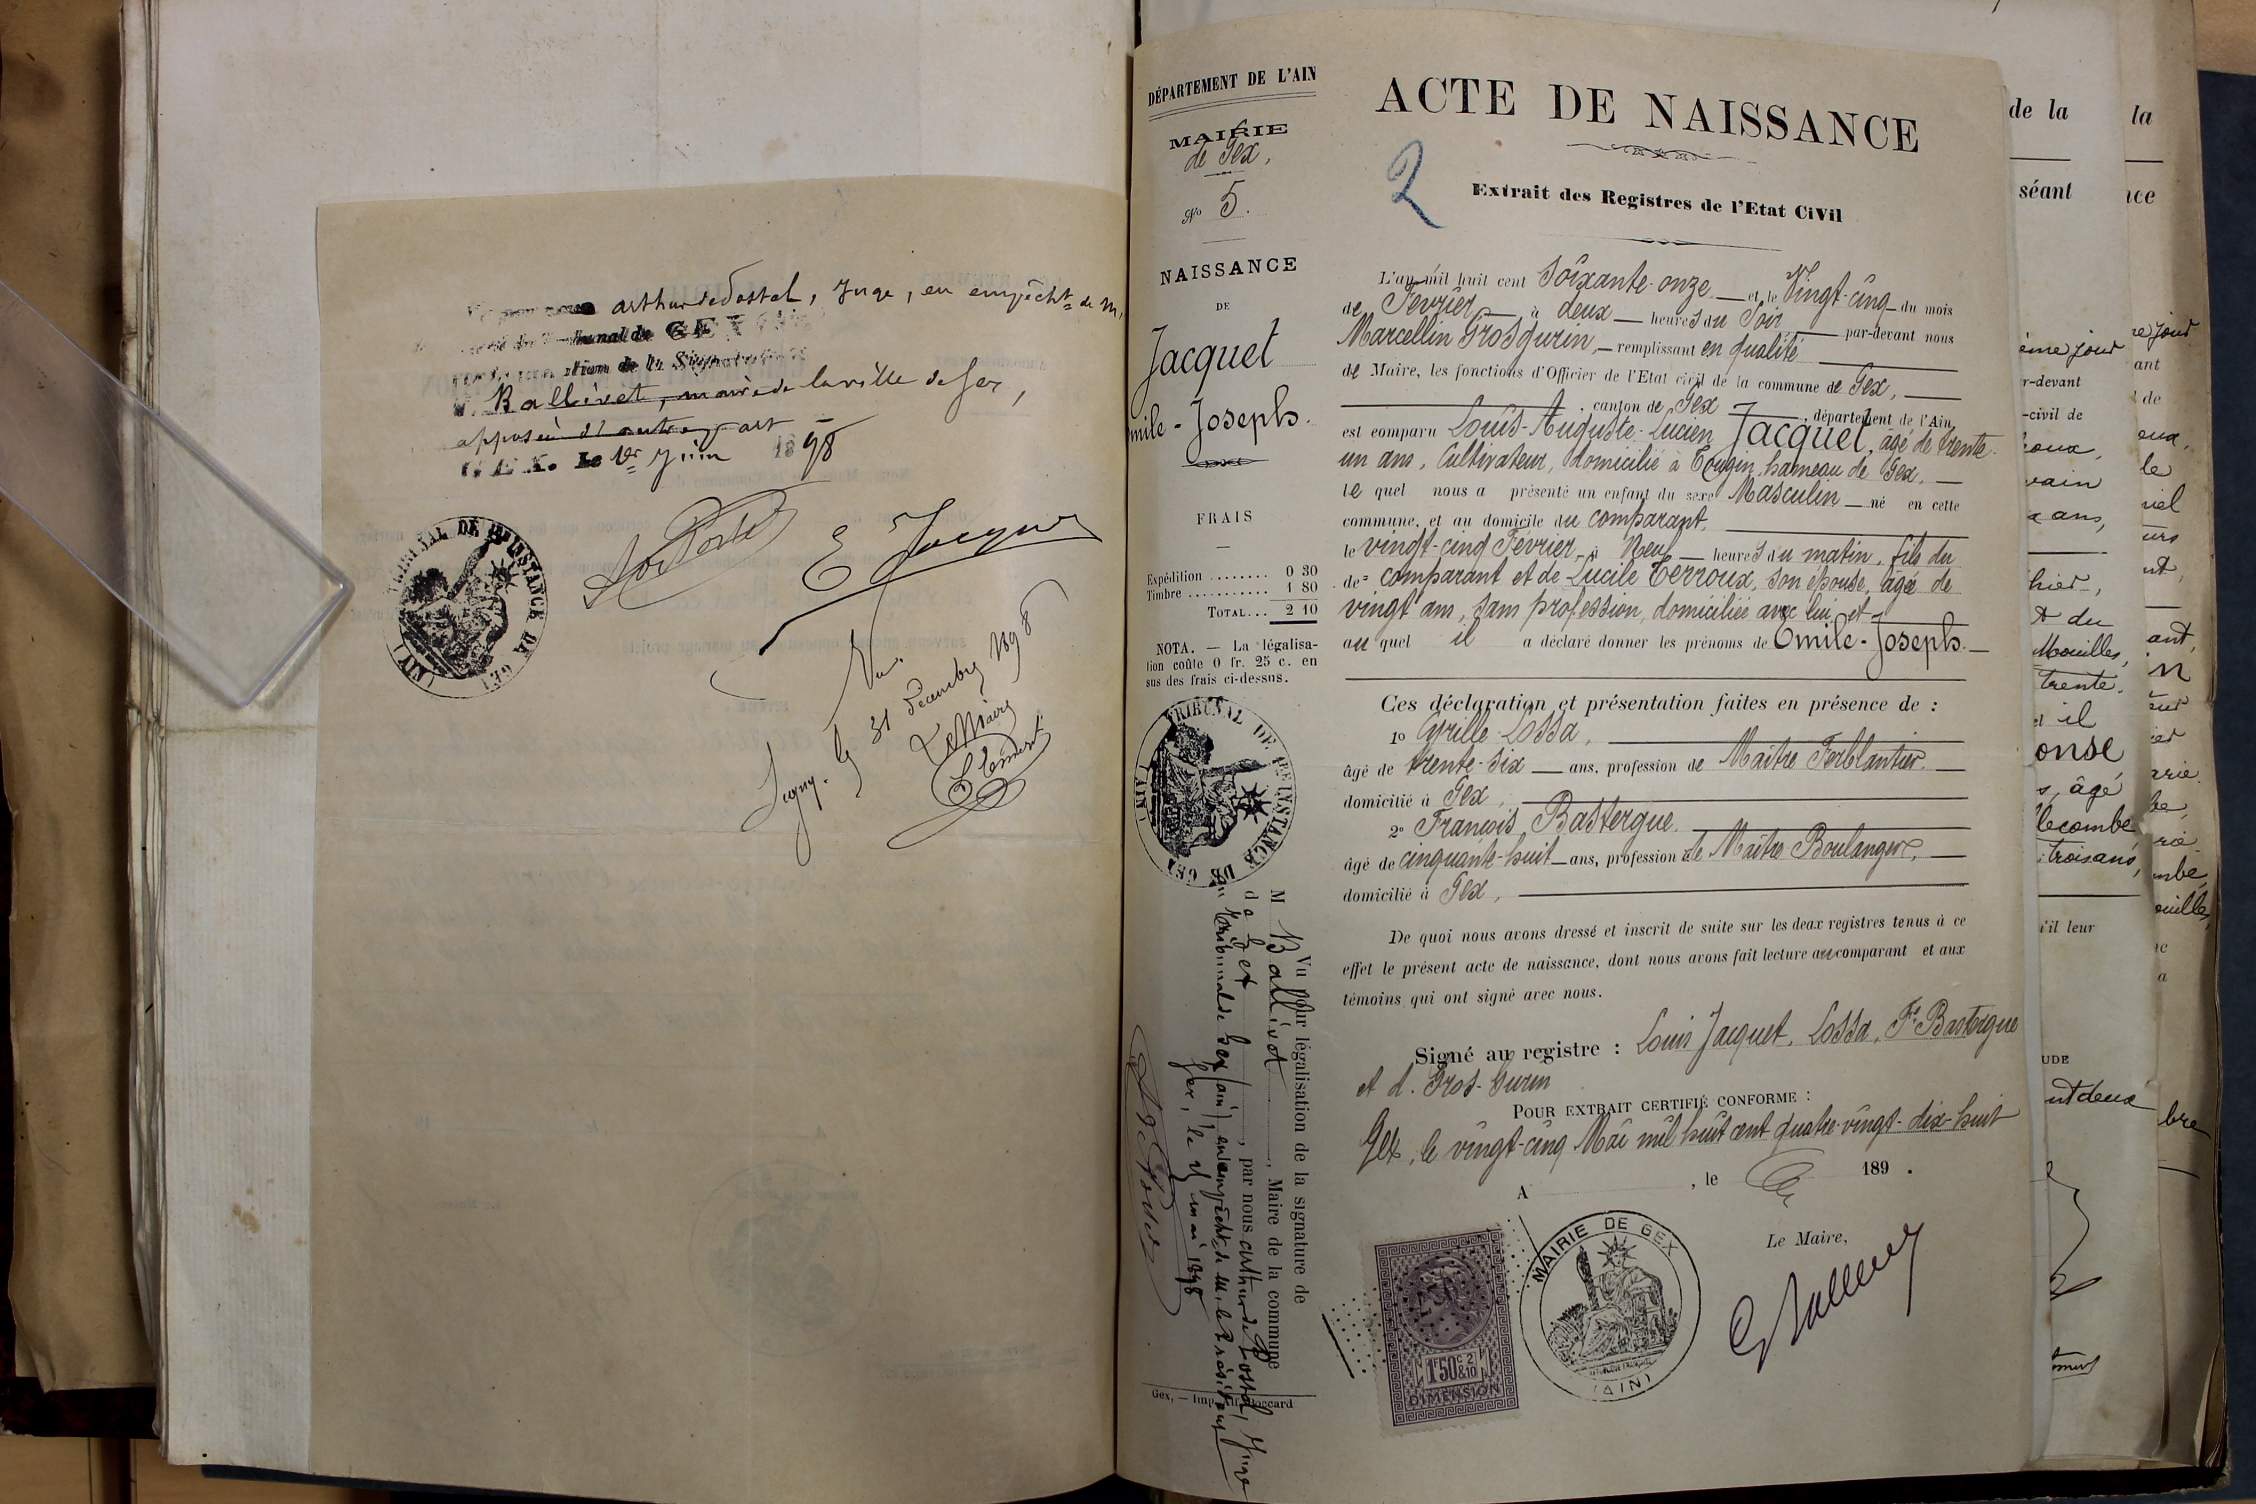 arthur de Postel, Juge, en empêcht de M.
Tribunal de GEX
tion de la Signature
Ballivet, maire de la ville de Gex,
apposée d'autre part
GEX. Le 1er Juin 1898
TRIBUNAL DE 1RE INSTANCE DE GEX (AIN)
E Jacquet
Vu
Segny. le 31 décembre 1898
Le Maire
Clément
DÉPARTEMENT DE L'AIN
MAIRIE
de Gex,
No 5.
NAISSANCE
DE
Jacquet
mile-Joseph.
FRAIS
Expédition ........ 0 30
Timbre ............ 1 80
TOTAL... 2 10
NOTA. — La légalisa-
tion coûte 0 fr. 25 c. en
sus des frais ci-dessus.
TRIBUNAL DE 1RE INSTANCE DE GEX (AIN)
Vu pour légalisation de la signature de
M Ballivet, Maire de la commune
de Gex, par nous arthur de Postel, Juge
au tribunal de Gex (ain), en empêcht de M. le Président
Gex, le 25 mai 1898
A de Postel
Gex, — Imp.
ACTE DE NAISSANCE
2
Extrait des Registres de l'Etat CiVil
L'an mil huit cent Soixante-onze — et le Vingt-cinq du mois
de Février à deux — heures du Soir par-devant nous
Marcellin Grosgurin, — remplissant en qualité
de Maire, les fonctions d'Officier de l'Etat civil de la commune de Gex,
canton de Gex, département de l'Ain,
est comparu Louis-Auguste-Lucien Jacquet, âgé de trente-
un ans, Cultivateur, domicilié à Tougin, hameau de Gex,
le quel nous a présenté un enfant du sexe Masculin — né en cette
commune, et au domicile du comparant,
le vingt-cinq Février, à Neuf — heures du matin, fils du
de= comparant et de Lucile Terroux, son épouse, âgée de
vingt ans, sans profession, domiciliée avec lui, et
au quel il a déclaré donner les prénoms de Emile-Joseph. —
Ces déclaration et présentation faites en présence de :
1o Cyrille Lossa,
âgé de trente-six — ans, profession de Maître Ferblantier.
domicilié à Gex,
2o François Bastergue.
âgé de cinquante-huit — ans, profession de Maître Boulanger,
domicilié à Gex,
De quoi nous avons dressé et inscrit de suite sur les deux registres tenus à ce
effet le présent acte de naissance, dont nous avons fait lecture au comparant et aux
témoins qui ont signé avec nous.
Signé au registre : Louis Jacquet, Lossa, Fs Bastergue
et d. Gros-Gurin
POUR EXTRAIT CERTIFIÉ CONFORME :
Gex, le vingt-cinq Mai mil huit cent quatre-vingt-dix-huit
A , le 189 .
Le Maire,
MAIRIE DE GEX
(AIN)
1F50C 2&10
DIMENSION
de la
séant
ème jour
r-devant
-civil de
vain
ans,
hier,
et du
Mouilles,
trente.
et il
onse
âgé
lecombe
trois ans,
'il leur
UDE
nt deux
la
nce
re jour
ant
de
le
niel
urs
ant,
arie
mbe,
ouilles,
bre